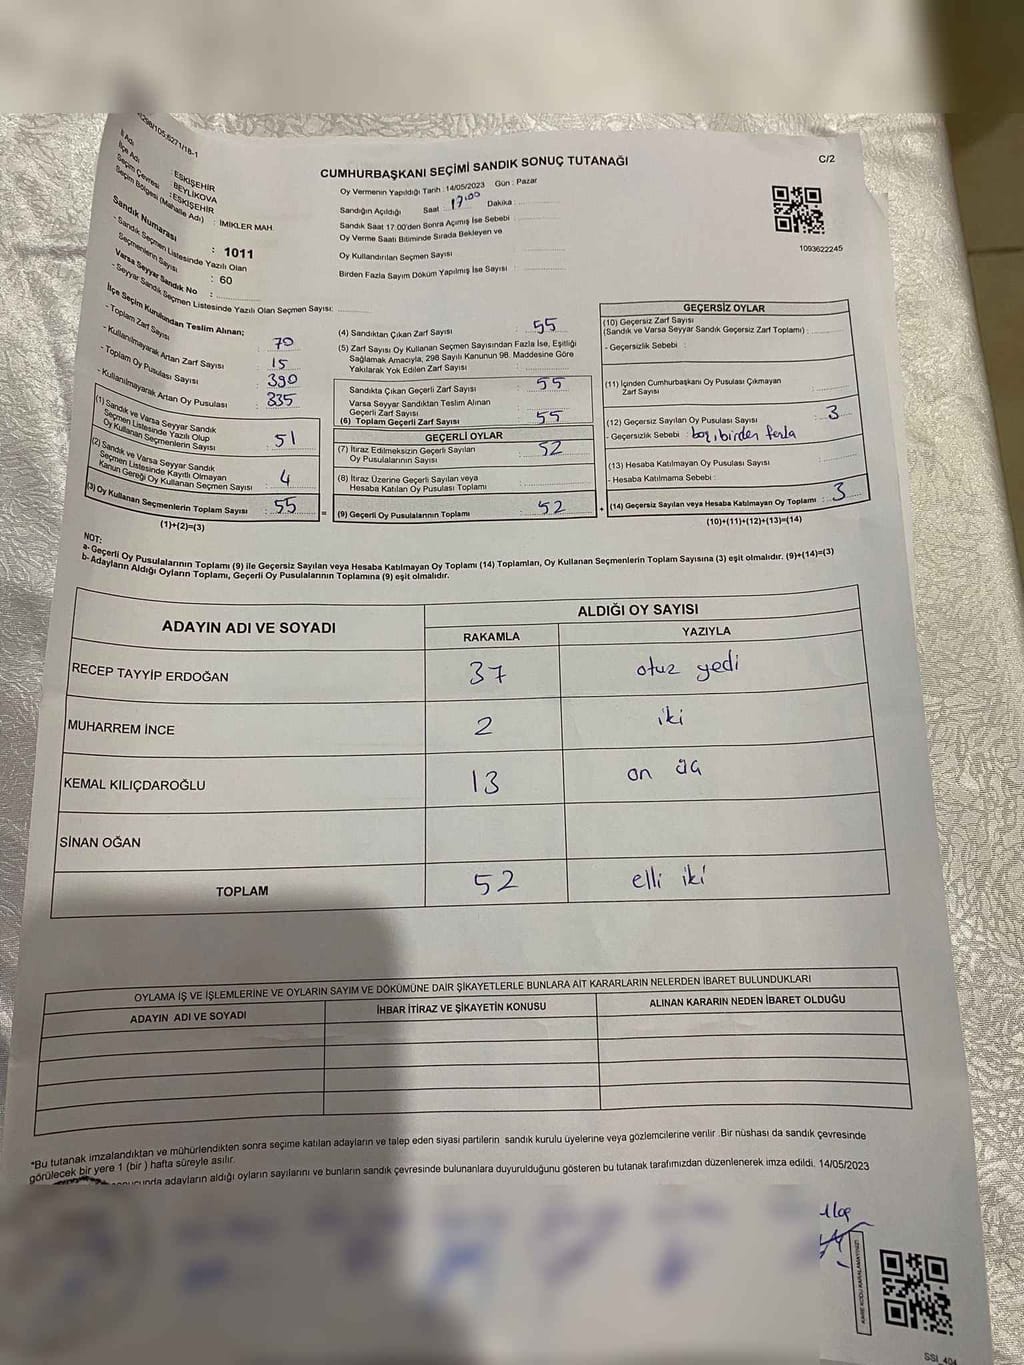 298/105,6271/18-1
İl Adı : ESKİŞEHİR
İlçe Adı : BEYLİKOVA
Seçim Çevresi : ESKİŞEHİR
Seçim Bölgesi (Mahalle Adı) : İMİKLER MAH.
Sandık Numarası : 1011
- Sandık Seçmen Listesinde Yazılı Olan
Seçmenlerin Sayısı : 60
Varsa Seyyar Sandık No :
- Seyyar Sandık Seçmen Listesinde Yazılı Olan Seçmen Sayısı:
CUMHURBAŞKANI SEÇİMİ SANDIK SONUÇ TUTANAĞI
C/2
Oy Vermenin Yapıldığı Tarih : 14/05/2023 Gün : Pazar
Sandığın Açıldığı Saat 17:00 Dakika :
Sandık Saat 17.00'den Sonra Açımış İse Sebebi :
Oy Verme Saati Bitiminde Sırada Bekleyen ve
Oy Kullandırılan Seçmen Sayısı
Birden Fazla Sayım Döküm Yapılmış İse Sayısı :
1093622245
İlçe Seçim Kurulundan Teslim Alınan;
- Toplam Zarf Sayısı : 70
- Kullanılmayarak Artan Zarf Sayısı : 15
- Toplam Oy Pusulası Sayısı : 390
- Kullanılmayarak Artan Oy Pusulası : 335
(1) Sandık ve Varsa Seyyar Sandık
Seçmen Listesinde Yazılı Olup
Oy Kullanan Seçmenlerin Sayısı : 51
(2) Sandık ve Varsa Seyyar Sandık
Seçmen Listesinde Kayıtlı Olmayan
Kanun Gereği Oy Kullanan Seçmen Sayısı : 4
(3) Oy Kullanan Seçmenlerin Toplam Sayısı : 55
(1)+(2)=(3)
(4) Sandıktan Çıkan Zarf Sayısı : 55
(5) Zarf Sayısı Oy Kullanan Seçmen Sayısından Fazla İse, Eşitliği
Sağlamak Amacıyla, 298 Sayılı Kanunun 98. Maddesine Göre
Yakılarak Yok Edilen Zarf Sayısı :
Sandıkta Çıkan Geçerli Zarf Sayısı : 55
Varsa Seyyar Sandıktan Teslim Alınan
Geçerli Zarf Sayısı :
(6) Toplam Geçerli Zarf Sayısı : 55
GEÇERLİ OYLAR
(7) İtiraz Edilmeksizin Geçerli Sayılan
Oy Pusulalarının Sayısı : 52
(8) İtiraz Üzerine Geçerli Sayılan veya
Hesaba Katılan Oy Pusulası Toplamı :
= (9) Geçerli Oy Pusulalarının Toplamı : 52
GEÇERSİZ OYLAR
(10) Geçersiz Zarf Sayısı
(Sandık ve Varsa Seyyar Sandık Geçersiz Zarf Toplamı) :
- Geçersizlik Sebebi :
(11) İçinden Cumhurbaşkanı Oy Pusulası Çıkmayan
Zarf Sayısı :
(12) Geçersiz Sayılan Oy Pusulası Sayısı : 3
- Geçersizlik Sebebi : boş, birden fazla
(13) Hesaba Katılmayan Oy Pusulası Sayısı :
- Hesaba Katılmama Sebebi :
+ (14) Geçersiz Sayılan veya Hesaba Katılmayan Oy Toplamı : 3
(10)+(11)+(12)+(13)=(14)
NOT:
a- Geçerli Oy Pusulalarının Toplamı (9) ile Geçersiz Sayılan veya Hesaba Katılmayan Oy Toplamı (14) Toplamları, Oy Kullanan Seçmenlerin Toplam Sayısına (3) eşit olmalıdır. (9)+(14)=(3)
b- Adayların Aldığı Oyların Toplamı, Geçerli Oy Pusulalarının Toplamına (9) eşit olmalıdır.
ADAYIN ADI VE SOYADI
ALDIĞI OY SAYISI
RAKAMLA YAZIYLA
RECEP TAYYİP ERDOĞAN 37 otuz yedi
MUHARREM İNCE 2 iki
KEMAL KILIÇDAROĞLU 13 on üç
SİNAN OĞAN
TOPLAM 52 elli iki
OYLAMA İŞ VE İŞLEMLERİNE VE OYLARIN SAYIM VE DÖKÜMÜNE DAİR ŞİKAYETLERLE BUNLARA AİT KARARLARIN NELERDEN İBARET BULUNDUKLARI
ADAYIN ADI VE SOYADI İHBAR İTİRAZ VE ŞİKAYETİN KONUSU ALINAN KARARIN NEDEN İBARET OLDUĞU
*Bu tutanak imzalandıktan ve mühürlendikten sonra seçime katılan adayların ve talep eden siyasi partilerin sandık kurulu üyelerine veya gözlemcilerine verilir. Bir nüshası da sandık çevresinde
görülecek bir yere 1 (bir) hafta süreyle asılır.
adayların aldığı oyların sayılarını ve bunların sandık çevresinde bulunanlara duyurulduğunu gösteren bu tutanak tarafımızdan düzenlenerek imza edildi. 14/05/2023
KARE KODU KARALAMAYINIZ!